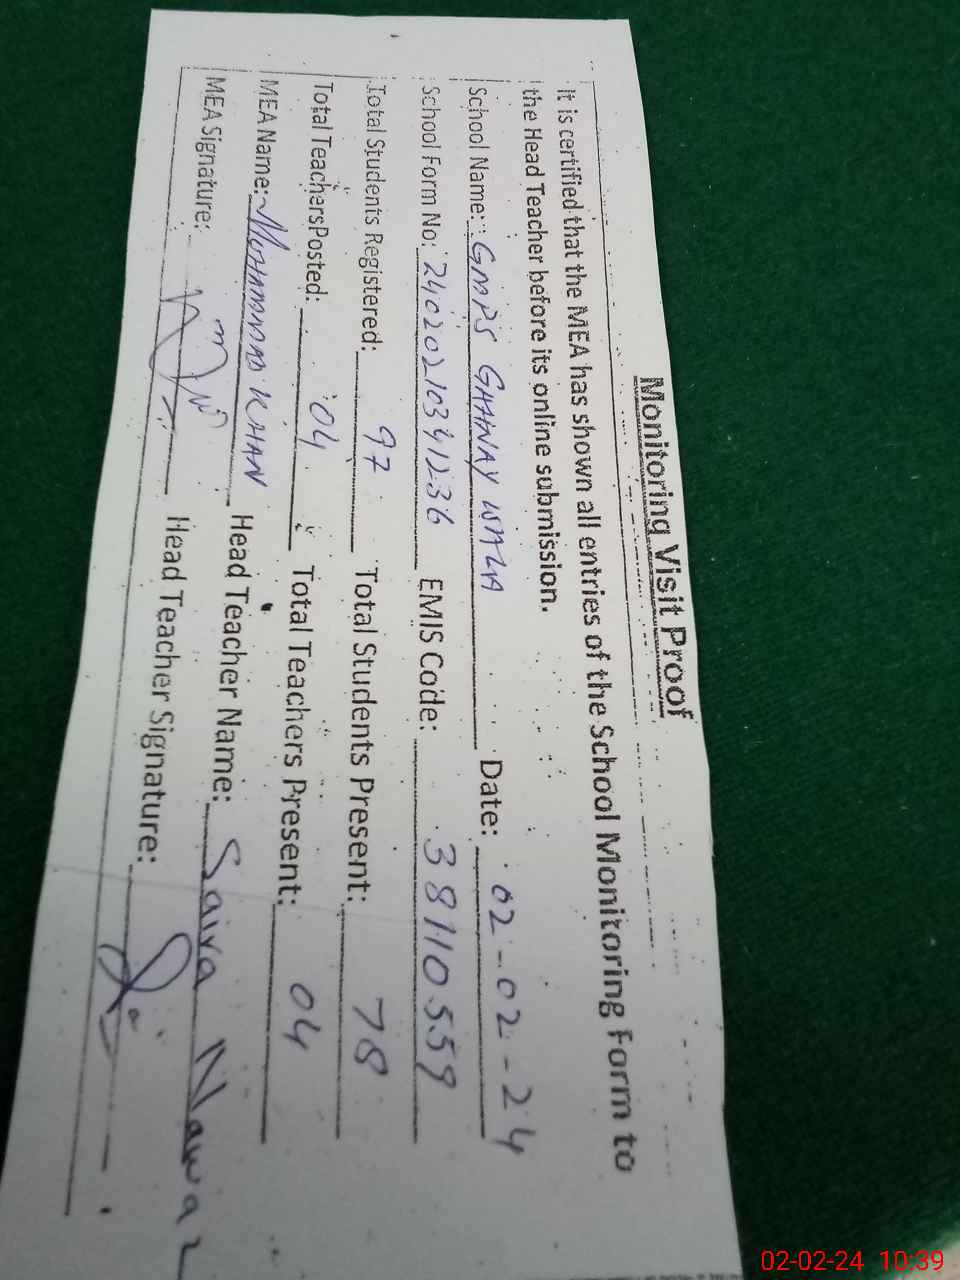 Monitoring Visit Proof
It is certified that the MEA has shown all entries of the School Monitoring Form to
the Head Teacher before its online submission.
School Name: GMPS GHANAY WALA Date: 02-02-24
School Form No: 24020210341236 EMIS Code: 38110559
Total Students Registered: 97 Total Students Present: 78
Total Teachers Posted: 04 Total Teachers Present: 04
MEA Name: MUHAMMAD KHAN Head Teacher Name: Saira Nawaz
MEA Signature: Head Teacher Signature:
02-02-24 10:39